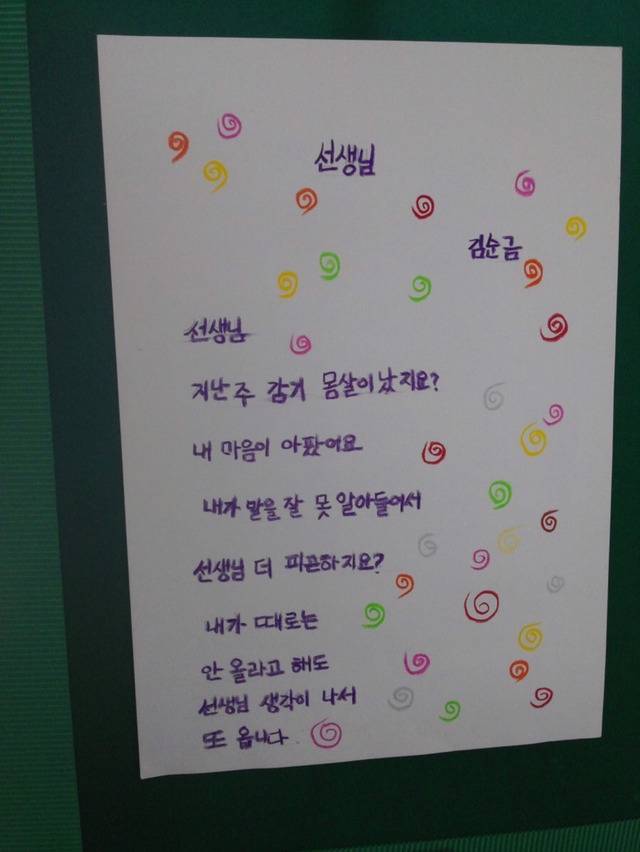 선생님
김순금
선생님
지난 주 감기 몸살이 났지요?
내 마음이 아팠어요
내가 말을 잘 못 알아들어서
선생님 더 피곤하지요?
내가 때로는
안 올라고 해도
선생님 생각이 나서
또 옵니다.